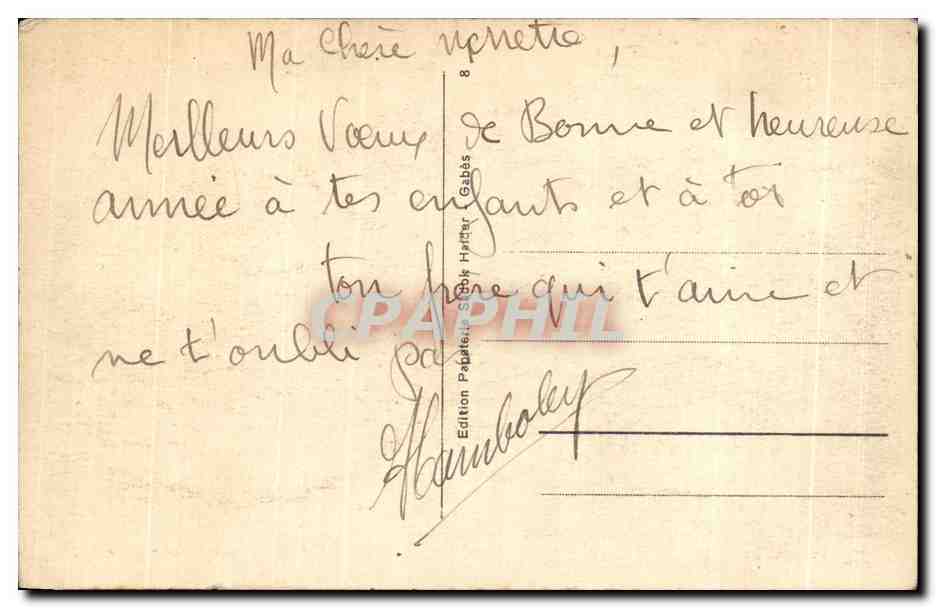 Ma Chère
Meilleurs Voeux de Bonne et heureuse
année à tes enfants et à toi
ton frère qui t'aime et
ne t'oubli pas
8
Edition Papeterie Haider - Gabès
CPAPHIL